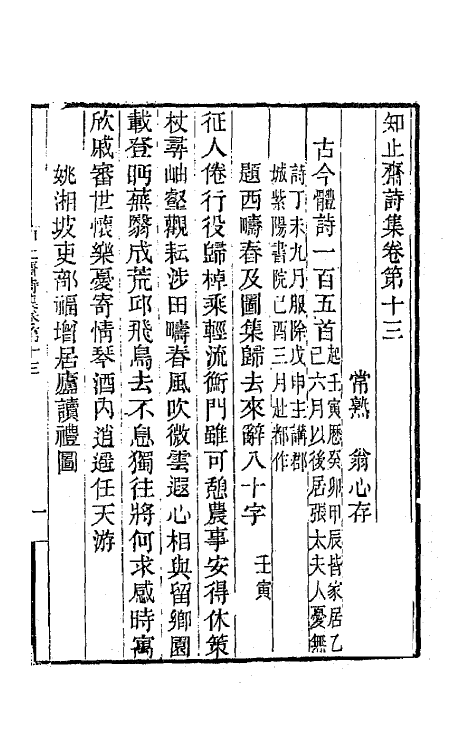 知止齋詩集卷第十三
常熟　翁心存
古今體詩一百五首起壬寅歷癸卯甲辰皆家居乙巳六月以後居張太夫人憂無
詩丁未九月服除戊申主講郡城紫陽書院己酉三月赴都作
題西疇春及圖集歸去來辭八十字　壬寅
征人倦行役歸棹乘輕流衡門雖可憩農事安得休策
杖尋岫壑觀耘涉田疇春風吹微雲遐心相與留鄉園
載登眄蕪翳成荒邱飛鳥去不息獨往將何求感時寓
欣戚審世懷樂憂寄情琴酒內逍遙任天游
姚湘坡吏部福增居廬讀禮圖
知止齋詩集卷第十三
一